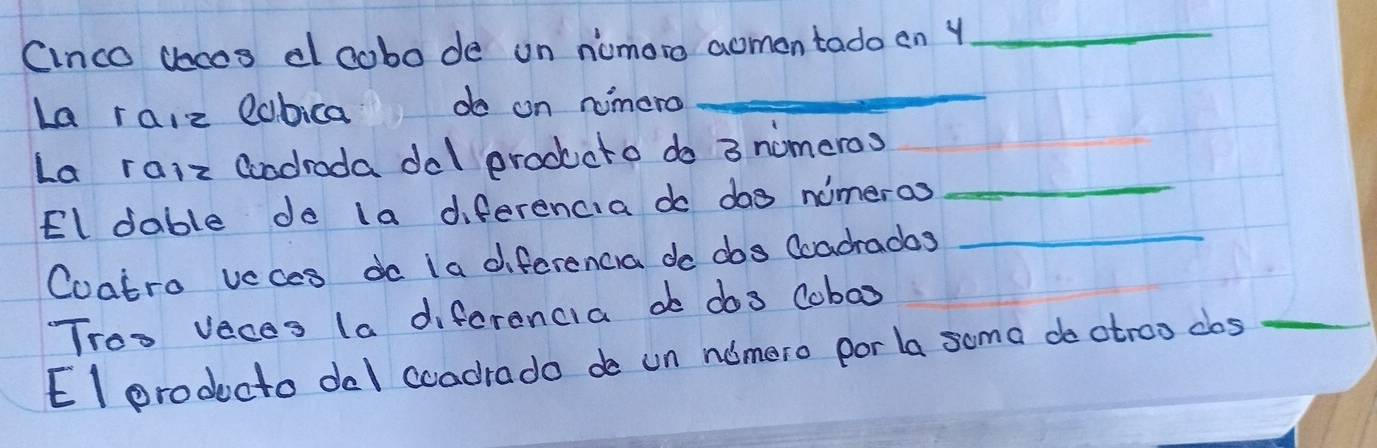 Cinco veces el cubo de un número aumentado en 4
La raiz cubica de un número
La raiz cuadrada del producto de 3 números
El doble de la diferencia de dos números
Cuatro veces de la diferencia de dos cuadrados
Tres veces la diferencia de dos cubos
El producto del cuadrado de un número por la suma de otros dos